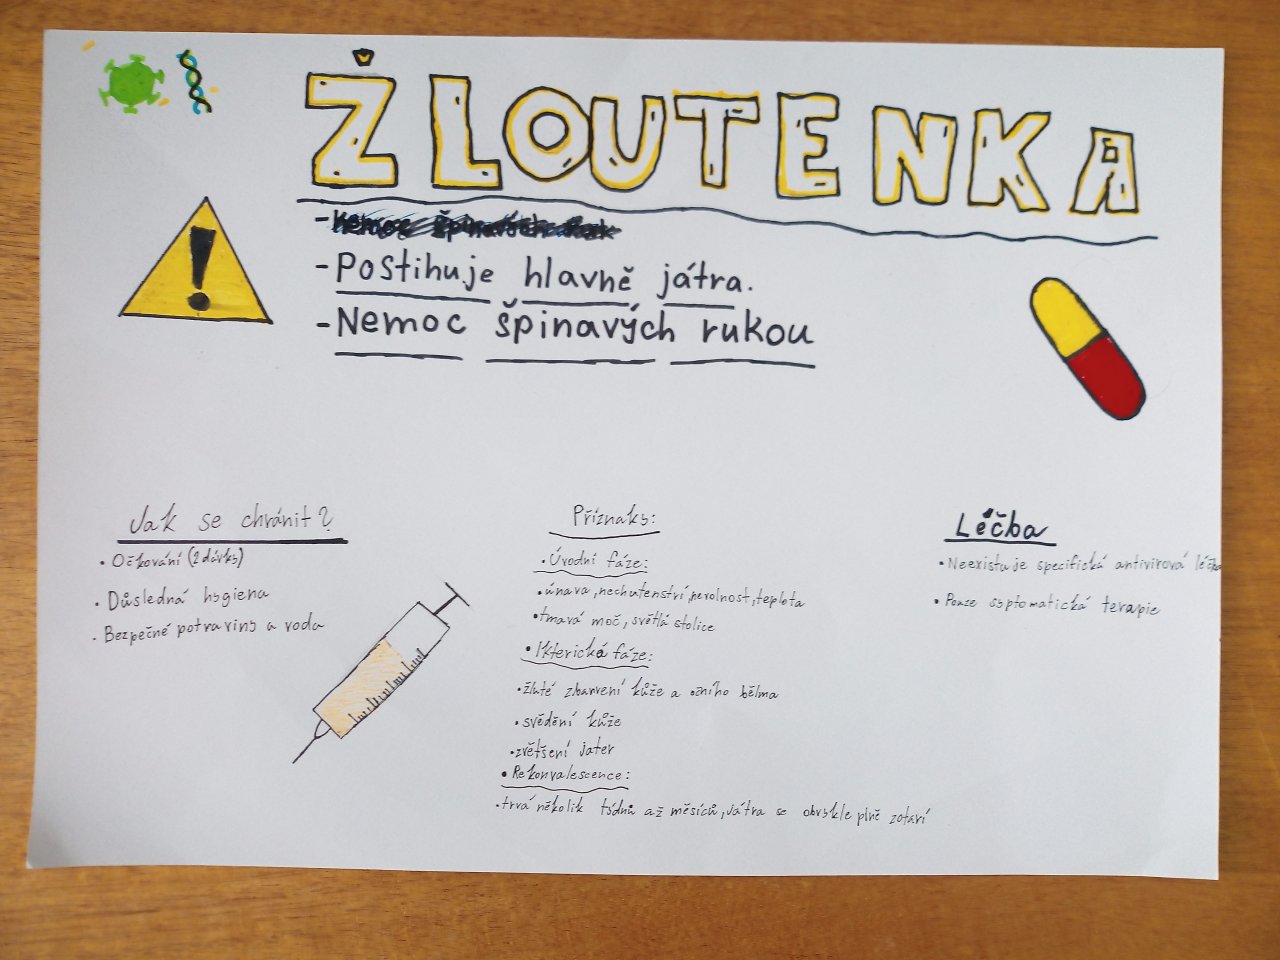 ŽLOUTENKA
- Nemoc špinavých
- Postihuje hlavně játra.
- Nemoc špinavých rukou
Jak se chránit?
• Očkování (2 dávky)
• Důsledná hygiena
• Bezpečné potraviny a voda
Příznaky:
• Úvodní fáze:
• únava, nechutenství, nevolnost, teplota
• tmavá moč, světlá stolice
• Ikterická fáze:
• žluté zbarvení kůže a očního bělma
• svědění kůže
• zvětšení jater
• Rekonvalescence:
• trvá několik týdnů až měsíců, játra se obvykle plně zotaví
Léčba
• Neexistuje specifická antivirová léčba
• Pouze syptomatická terapie